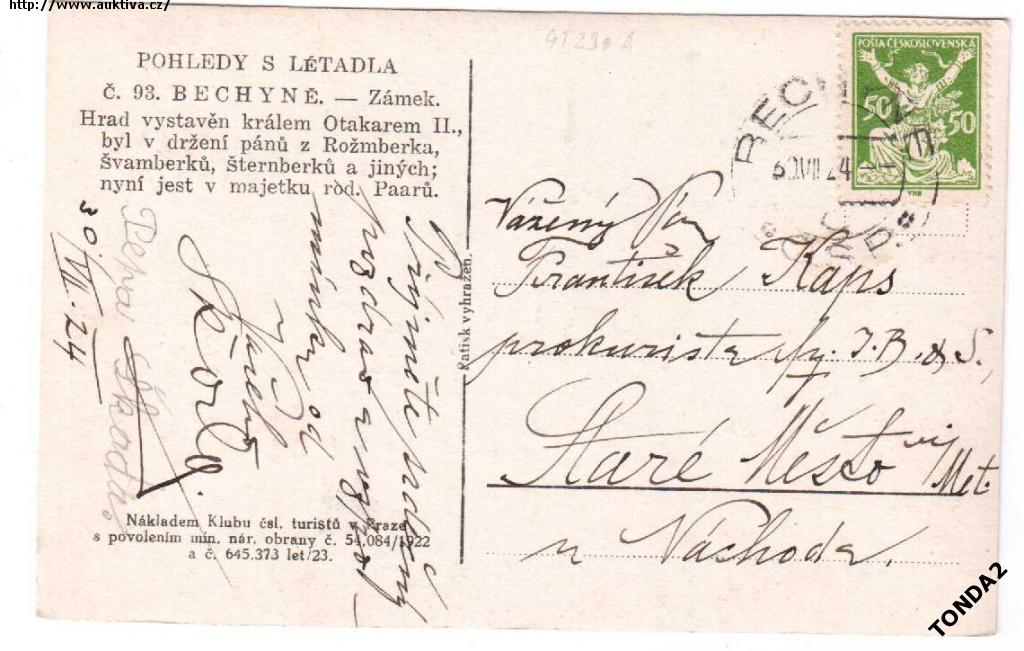 http://www.auktiva.cz/
POHLEDY S LÉTADLA
Č. 93. BECHYNĚ. — Zámek.
Hrad vystavěn králem Otakarem II.,
byl v držení pánů z Rožmberka,
Švamberků, Šternberků a jiných;
nyní jest v majetku rod. Paarů.
POŠTA ČESKOSLOVENSKÁ
50 50
BECHYNĚ
30.VII.24
Vážený Pán
František Kaps
prokurista fy. J.B. & S.
Staré Město n/Met.
u Náchoda.
Přijměte srdečný
pozdrav z
od
Vašeho
30/VII. 24
Ratisk vyhražen.
Nákladem Klubu čsl. turistů v Praze
s povolením min. nár. obrany č. 54.084/1922
a č. 645.373 let/23.
TONDA2